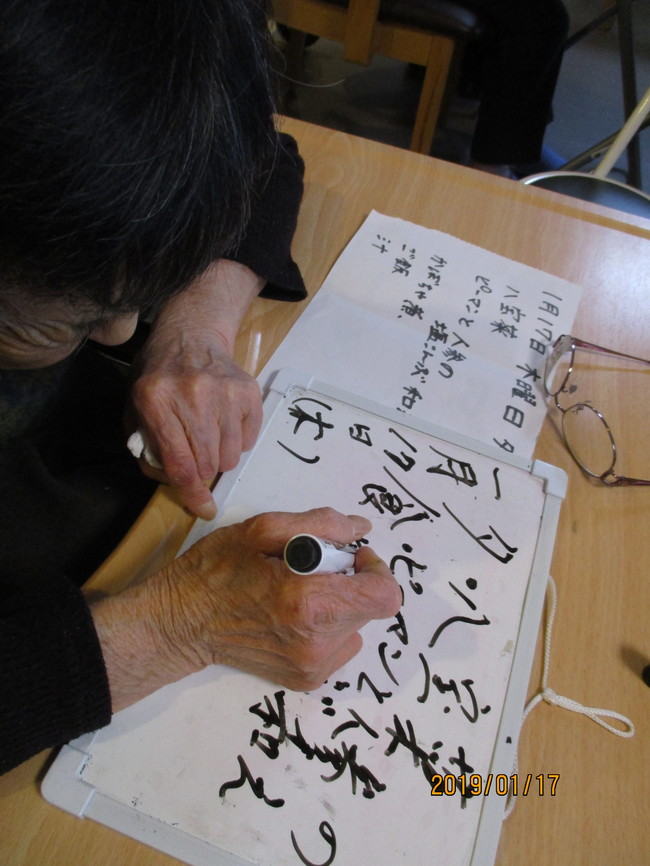 1月17日 木曜日 夕
八宝菜
ピーマンと人参の
かぼちゃ煮
ご飯
汁
一月
17日
(木)
夕食
・八宝菜
・ピーマンと人参の
和え
2019/01/17